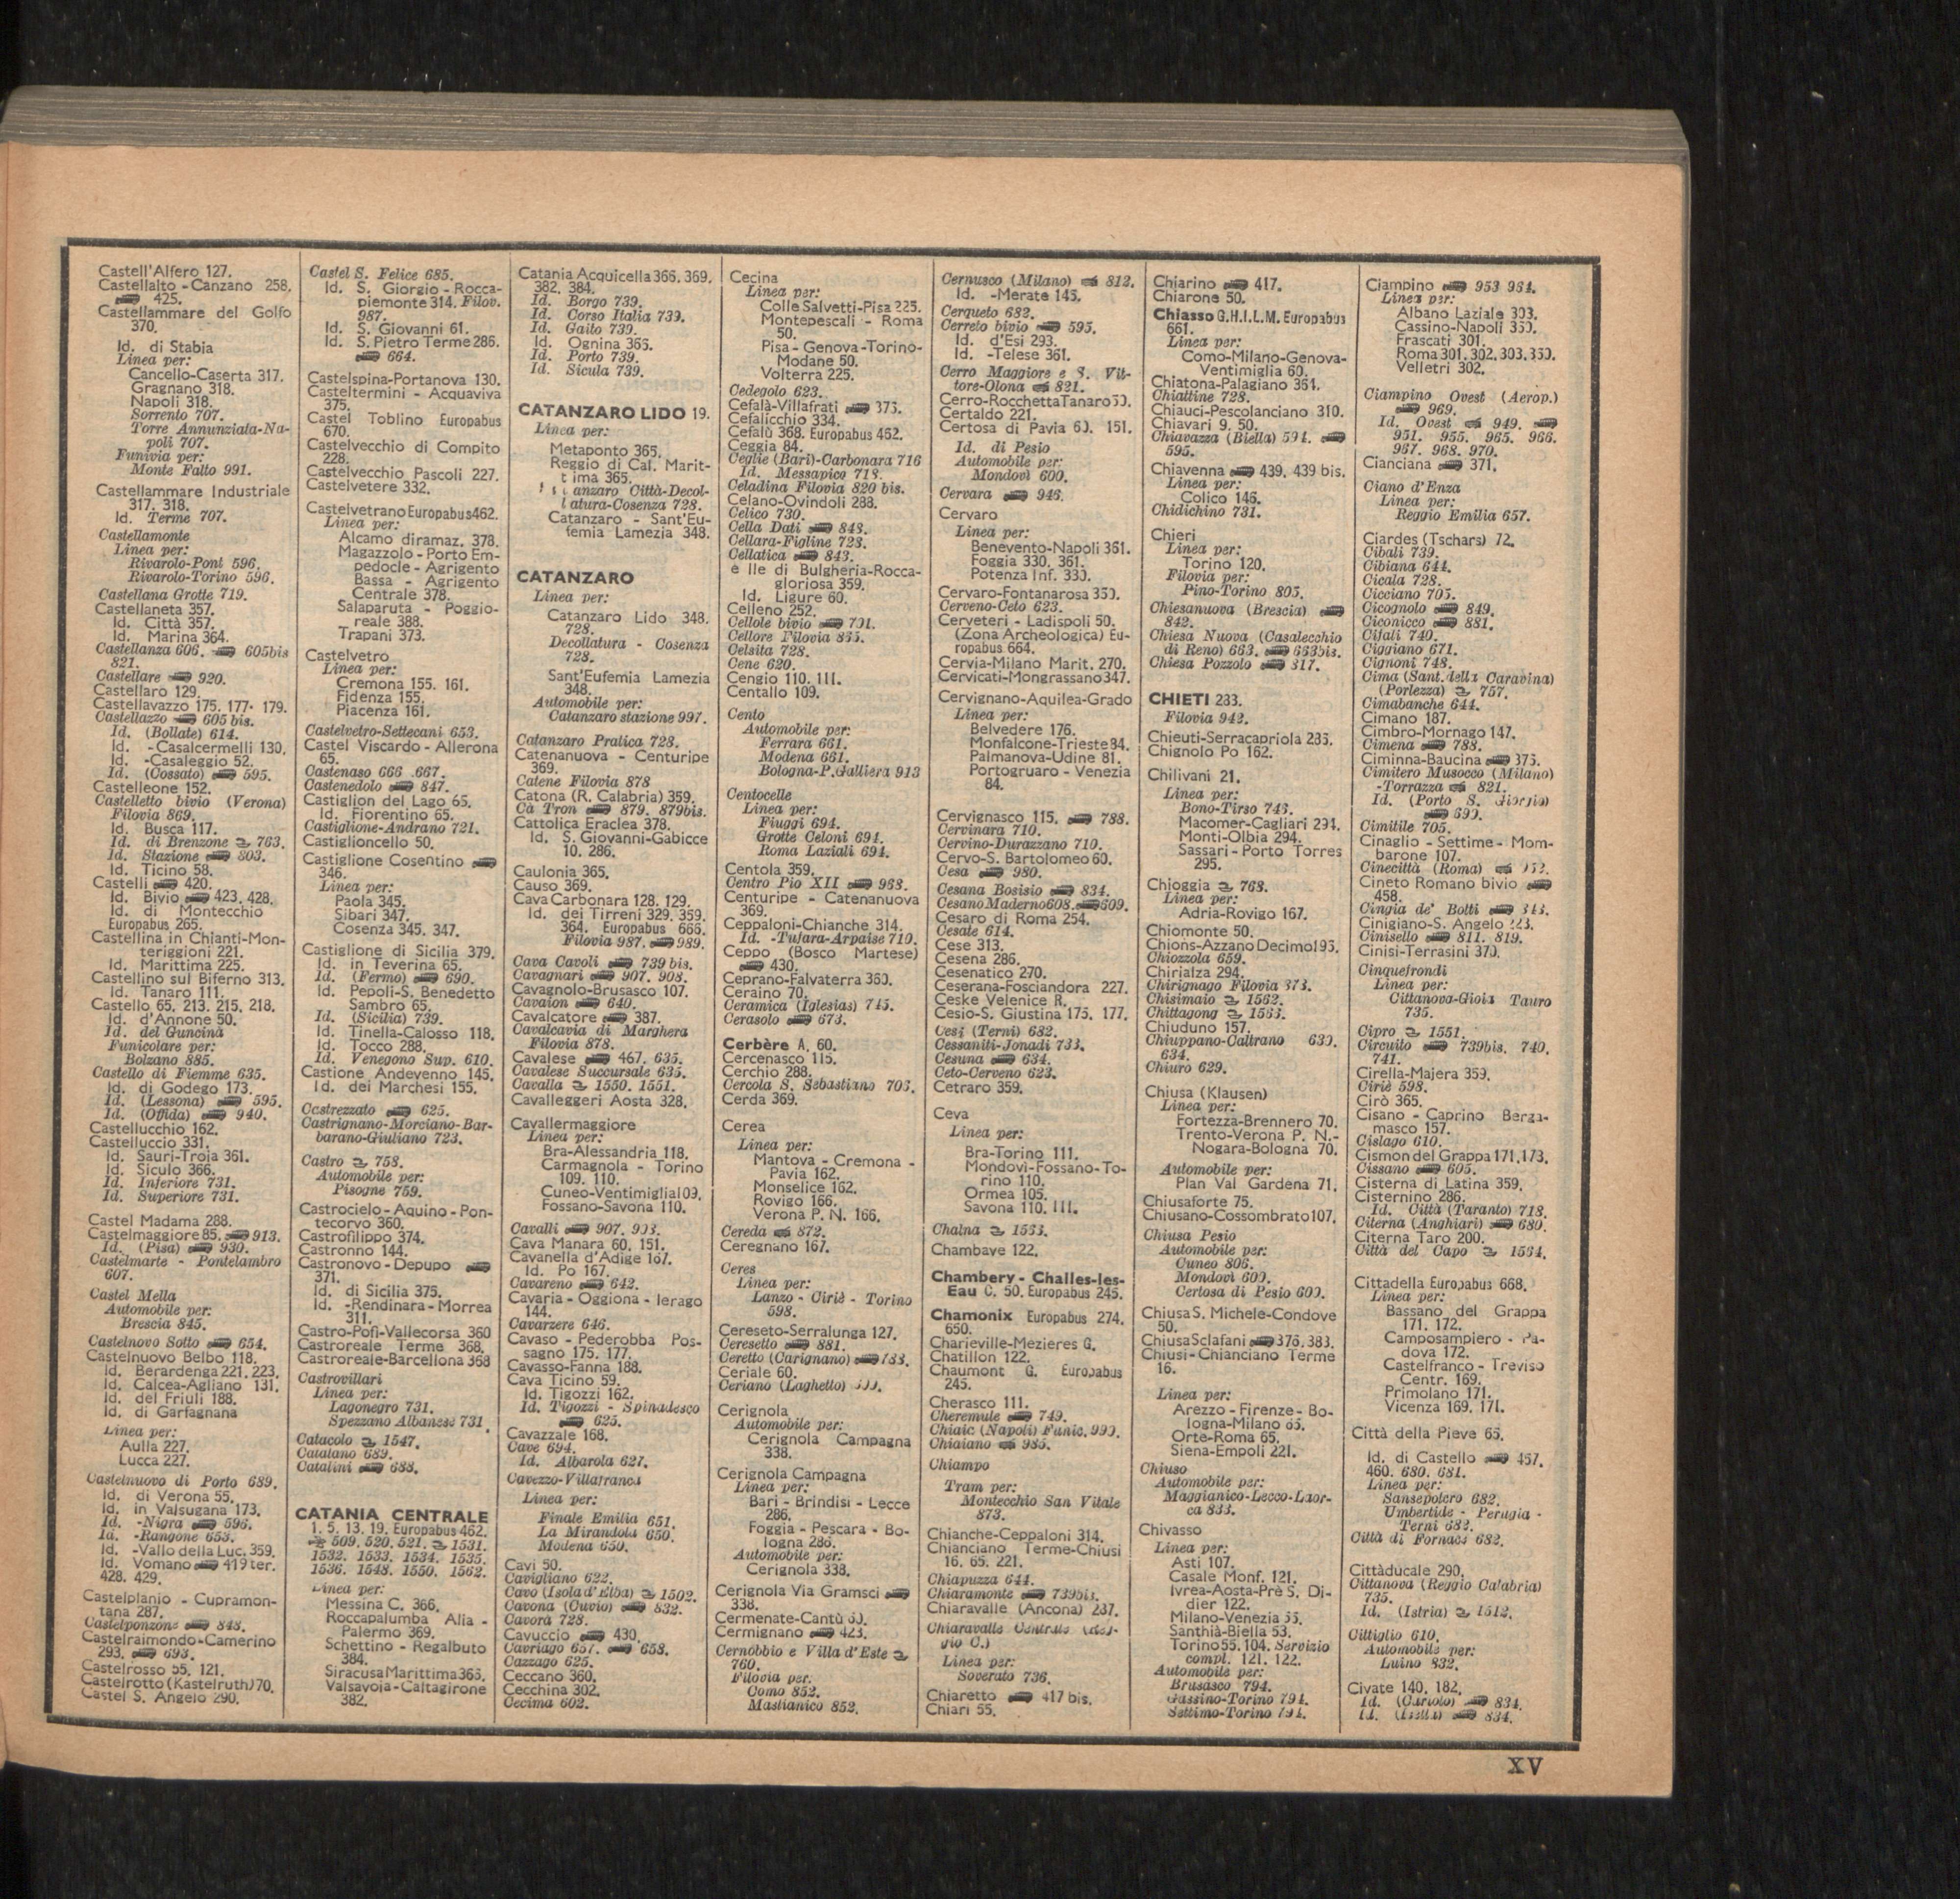 Castell'Alfero 127.
Castellalto - Canzano 258.
425.
Castellammare del Golfo
370.
Id. di Stabia
Linea per:
Cancello-Caserta 317.
Gragnano 318.
Napoli 318.
Sorrento 707.
Torre Annunziata-Na-
poli 707.
Funivia per:
Monte Falto 991.
Castellammare Industriale
317. 318.
Id. Terme 707.
Castellamonte
Linea per:
Rivarolo-Pont 596.
Rivarolo-Torino 596.
Castellana Grotte 719.
Castellaneta 357.
Id. Città 357.
Id. Marina 364.
Castellanza 606. 605bis
821.
Castellare 920.
Castellaro 129.
Castellavazzo 175. 177. 179.
Castellazzo 605 bis.
Id. (Bollate) 614.
Id. -Casalcermelli 130.
Id. -Casaleggio 52.
Id. (Cossato) 595.
Castelleone 152.
Castelletto bivio (Verona)
Filovia 869.
Id. Busca 117.
Id. di Brenzone 763.
Id. Stazione 803.
Id. Ticino 58.
Castelli 420.
Id. Bivio 423. 428.
Id. di Montecchio
Europabus 265.
Castellina in Chianti-Mon-
teriggioni 221.
Id. Marittima 225.
Castellino sul Biferno 313.
Id. Tanaro 111.
Castello 65. 213. 215. 218.
Id. d'Annone 50.
Id. del Guncina
Funicolare per:
Bolzano 885.
Castello di Fiemme 635.
Id. di Godego 173.
Id. (Lessona) 595.
Id. (Offida) 940.
Castellucchio 162.
Castelluccio 331.
Id. Sauri-Troia 361.
Id. Siculo 366.
Id. Inferiore 731.
Id. Superiore 731.
Castel Madama 288.
Castelmaggiore 85. 913.
Id. (Pisa) 930.
Castelmarte - Pontelambro
607.
Castel Mella
Automobile per:
Brescia 845.
Castelnovo Sotto 654.
Castelnuovo Belbo 118.
Id. Berardenga 221. 223.
Id. Calcea-Agliano 131.
Id. del Friuli 188.
Id. di Garfagnana
Linea per:
Aulla 227.
Lucca 227.
Castelnuovo di Porto 689.
Id. di Verona 55.
Id. in Valsugana 173.
Id. -Nigra 596.
Id. -Rangone 653.
Id. -Vallo della Luc. 359.
Id. Vomano 419 ter.
428. 429.
Castelplanio - Cupramon-
tana 287.
Castelponzone 848.
Castelraimondo-Camerino
293. 693.
Castelrosso 55. 121.
Castelrotto (Kastelruth) 70.
Castel S. Angelo 290.
Castel S. Felice 685.
Id. S. Giorgio - Rocca-
piemonte 314. Filov.
987.
Id. S. Giovanni 61.
Id. S. Pietro Terme 286.
664.
Castelspina-Portanova 130.
Casteltermini - Acquaviva
375.
Castel Toblino Europabus
670.
Castelvecchio di Compito
228.
Castelvecchio Pascoli 227.
Castelvetere 332.
Castelvetrano Europabus 462.
Linea per:
Alcamo diramaz. 378.
Magazzolo - Porto Em-
pedocle - Agrigento
Bassa - Agrigento
Centrale 378.
Salaparuta - Poggio-
reale 388.
Trapani 373.
Castelvetro
Linea per:
Cremona 155. 161.
Fidenza 155.
Piacenza 161.
Castelvetro-Settecani 653.
Castel Viscardo - Allerona
65.
Castenaso 666 .667.
Castenedolo 847.
Castiglion del Lago 65.
Id. Fiorentino 65.
Castiglione-Andrano 721.
Castiglioncello 50.
Castiglione Cosentino
346.
Linea per:
Paola 345.
Sibari 347.
Cosenza 345. 347.
Castiglione di Sicilia 379.
Id. in Teverina 65.
Id. (Fermo) 690.
Id. Pepoli-S. Benedetto
Sambro 65.
Id. (Sicilia) 739.
Id. Tinella-Calosso 118.
Id. Tocco 288.
Id. Venegono Sup. 610.
Castione Andevenno 145.
Id. dei Marchesi 155.
Castrezzato 625.
Castrignano-Morciano-Bar-
barano-Giuliano 723.
Castro 758.
Automobile per:
Pisogne 759.
Castrocielo - Aquino - Pon-
tecorvo 360.
Castrofilippo 374.
Castronno 144.
Castronovo - Depupo
371.
Id. di Sicilia 375.
Id. -Rendinara - Morrea
311.
Castro-Pofi-Vallecorsa 360
Castroreale Terme 368.
Castroreale-Barcellona 368
Castrovillari
Linea per:
Lagonegro 731.
Spezzano Albanese 731
Catacolo 1547.
Catalano 689.
Catalini 688.
CATANIA CENTRALE
1. 5. 13. 19. Europabus 462.
509. 520. 521. 1531.
1532. 1533. 1534. 1535.
1536. 1548. 1550. 1562.
Linea per:
Messina C. 366.
Roccapalumba Alia -
Palermo 369.
Schettino - Regalbuto
384.
Siracusa Marittima 365.
Valsavoia-Caltagirone
382.
Catania Acquicella 366. 369.
382. 384.
Id. Borgo 739.
Id. Corso Italia 739.
Id. Gaito 739.
Id. Ognina 366.
Id. Porto 739.
Id. Sicula 739.
CATANZARO LIDO 19.
Linea per:
Metaponto 365.
Reggio di Cal. Marit-
tima 365.
anzaro Città-Decol-
latura-Cosenza 728.
Catanzaro - Sant'Eu-
femia Lamezia 348.
CATANZARO
Linea per:
Catanzaro Lido 348.
728.
Decollatura - Cosenza
728.
Sant'Eufemia Lamezia
348.
Automobile per:
Catanzaro stazione 997.
Catanzaro Pratica 728.
Catenanuova - Centuripe
369.
Catene Filovia 878
Catona (R. Calabria) 359.
Ca Tron 879. 879bis.
Cattolica Eraclea 378.
Id. S. Giovanni-Gabicce
10. 286.
Caulonia 365.
Causo 369.
Cava Carbonara 128. 129.
Id. dei Tirreni 329. 359.
364. Europabus 666.
Filovia 987. 989.
Cava Cavoli 739 bis.
Cavagnari 907. 908.
Cavagnolo-Brusasco 107.
Cavaion 640.
Cavalcatore 387.
Cavalcavia di Marghera
Filovia 878.
Cavalese 467. 635.
Cavalese Succursale 635.
Cavalla 1550. 1551.
Cavalleggeri Aosta 328.
Cavallermaggiore
Linea per:
Bra-Alessandria 118.
Carmagnola - Torino
109. 110.
Cuneo-Ventimiglia 109.
Fossano-Savona 110.
Cavalli 907. 903.
Cava Manara 60. 151.
Cavanella d'Adige 167.
Id. Po 167.
Cavareno 642.
Cavaria - Oggiona - Ierago
144.
Cavarzere 646.
Cavaso - Pederobba Pos-
sagno 175. 177.
Cavasso-Fanna 188.
Cava Ticino 59.
Id. Tigozzi 162.
Id. Tigozzi - Spinadesco
625.
Cavazzale 168.
Cave 694.
Id. Albarola 627.
Cavezzo-Villafranca
Linea per:
Finale Emilia 651.
La Mirandola 650.
Modena 650.
Cavi 50.
Cavigliano 622.
Cavo (Isola d'Elba) 1502.
Cavona (Cuvio) 832.
Cavorà 728.
Cavuccio 430.
Cavriago 657. 658.
Cazzago 625.
Ceccano 360.
Cecchina 302.
Cecima 602.
Cecina
Linea per:
Colle Salvetti-Pisa 225.
Montepescali - Roma
50.
Pisa - Genova-Torino-
Modane 50.
Volterra 225.
Cedegolo 623.
Cefalà-Villafrati 375.
Cefalicchio 334.
Cefalù 368. Europabus 462.
Ceggia 84.
Ceglie (Bari)-Carbonara 716
Id. Messapico 718.
Celadina Filovia 820 bis.
Celano-Ovindoli 288.
Celico 730.
Cella Dati 848.
Cellara-Figline 728.
Cellatica 843.
e lle di Bulgheria-Rocca-
gloriosa 359.
Id. Ligure 60.
Celleno 252.
Cellole bivio 701.
Cellore Filovia 865.
Celsita 728.
Cene 620.
Cengio 110. 111.
Centallo 109.
Cento
Automobile per:
Ferrara 661.
Modena 661.
Bologna-P.Galliera 913
Centocelle
Linea per:
Fiuggi 694.
Grotte Celoni 694.
Roma Laziali 694.
Centola 359.
Centro Pio XII 968.
Centuripe - Catenanuova
369.
Ceppaloni-Chianche 314.
Id. -Tufara-Arpaise 710.
Ceppo (Bosco Martese)
430.
Ceprano-Falvaterra 360.
Ceraino 70.
Ceramica (Iglesias) 745.
Cerasolo 673.
Cerbère A. 60.
Cercenasco 115.
Cerchio 288.
Cercola S. Sebastiano 703.
Cerda 369.
Cerea
Linea per:
Mantova - Cremona -
Pavia 162.
Monselice 162.
Rovigo 166.
Verona P. N. 166.
Cereda 872.
Ceregnano 167.
Ceres
Linea per:
Lanzo - Ciriè - Torino
598.
Cereseto-Serralunga 127.
Ceresetto 881.
Ceretto (Carignano) 788.
Ceriale 60.
Ceriano (Laghetto)
Cerignola
Automobile per:
Cerignola Campagna
338.
Cerignola Campagna
Linea per:
Bari - Brindisi - Lecce
286.
Foggia - Pescara - Bo-
logna 286.
Automobile per:
Cerignola 338.
Cerignola Via Gramsci
338.
Cermenate-Cantù 60.
Cermignano 423.
Cernobbio e Villa d'Este
760.
Filovia per:
Como 852.
Maslianico 852.
Cernusco (Milano) 812.
Id. -Merate 145.
Cerqueto 682.
Cerreto bivio 595.
Id. d'Esi 293.
Id. -Telese 361.
Cerro Maggiore e S. Vit-
tore-Olona 821.
Cerro-Rocchetta Tanaro 50.
Certaldo 221.
Certosa di Pavia 60. 151.
Id. di Pesio
Automobile per:
Mondovì 600.
Cervara 946.
Cervaro
Linea per:
Benevento-Napoli 361.
Foggia 330. 361.
Potenza Inf. 330.
Cervaro-Fontanarosa 360.
Cerveno-Ceto 623.
Cerveteri - Ladispoli 50.
(Zona Archeologica) Eu-
ropabus 664.
Cervia-Milano Marit. 270.
Cervicati-Mongrassano 347.
Cervignano-Aquilea-Grado
Linea per:
Belvedere 176.
Monfalcone-Trieste 84.
Palmanova-Udine 81.
Portogruaro - Venezia
84.
Cervignasco 115. 788.
Cervinara 710.
Cervino-Durazzano 710.
Cervo-S. Bartolomeo 60.
Cesa 980.
Cesana Bosisio 834.
Cesano Maderno 608. 609.
Cesaro di Roma 254.
Cesate 614.
Cese 313.
Cesena 286.
Cesenatico 270.
Ceserana-Fosciandora 227.
Ceske Velenice R.
Cesio-S. Giustina 175. 177.
Cesi (Terni) 682.
Cessaniti-Jonadi 733.
Cesuna 634.
Ceto-Cerveno 623.
Cetraro 359.
Ceva
Linea per:
Bra-Torino 111.
Mondovì-Fossano-To-
rino 110.
Ormea 105.
Savona 110. 111.
Chalna 1563.
Chambave 122.
Chambery - Challes-les-
Eau C. 50. Europabus 245.
Chamonix Europabus 274.
650.
Charieville-Mezieres G.
Chatillon 122.
Chaumont G. Europabus
245.
Cherasco 111.
Cheremule 749.
Chiaic (Napoli) Funic. 990.
Chiaiano 985.
Chiampo
Tram per:
Montecchio San Vitale
873.
Chianche-Ceppaloni 314.
Chianciano Terme-Chiusi
16. 65. 221.
Chiapuzza 644.
Chiaramonte 739bis.
Chiaravalle (Ancona) 287.
Chiaravalle Centrale
Linea per:
Soverato 736.
Chiaretto 417 bis.
Chiari 55.
Chiarino 417.
Chiarone 50.
Chiasso G.H.I.L.M. Europabus
661.
Linea per:
Como-Milano-Genova-
Ventimiglia 60.
Chiatona-Palagiano 364.
Chiattine 728.
Chiauci-Pescolanciano 310.
Chiavari 9. 50.
Chiavazza (Biella) 594.
595.
Chiavenna 439. 439 bis.
Linea per:
Colico 146.
Chidichino 731.
Chieri
Linea per:
Torino 120.
Filovia per:
Pino-Torino 805.
Chiesanuova (Brescia)
842.
Chiesa Nuova (Casalecchio
di Reno) 663. 663bis.
Chiesa Pozzolo 817.
CHIETI 283.
Filovia 942.
Chieuti-Serracapriola 286.
Chignolo Po 162.
Chilivani 21.
Linea per:
Bono-Tirso 746.
Macomer-Cagliari 294.
Monti-Olbia 294.
Sassari - Porto Torres
295.
Chioggia 768.
Linea per:
Adria-Rovigo 167.
Chiomonte 50.
Chions-Azzano Decimo 195.
Chiozzola 659.
Chirialza 294.
Chirignago Filovia 878.
Chisimaio 1562.
Chittagong 1563.
Chiuduno 157.
Chiuppano-Caltrano 630.
634.
Chiuro 629.
Chiusa (Klausen)
Linea per:
Fortezza-Brennero 70.
Trento-Verona P. N.-
Nogara-Bologna 70.
Automobile per:
Plan Val Gardena 71.
Chiusaforte 75.
Chiusano-Cossombrato 107.
Chiusa Pesio
Automobile per:
Cuneo 806.
Mondovì 600.
Certosa di Pesio 600.
Chiusa S. Michele-Condove
50.
Chiusa Sclafani 376. 383.
Chiusi-Chianciano Terme
16.
Linea per:
Arezzo - Firenze - Bo-
logna-Milano 65.
Orte-Roma 65.
Siena-Empoli 221.
Chiuso
Automobile per:
Maggianico-Lecco-Laor-
ca 833.
Chivasso
Linea per:
Asti 107.
Casale Monf. 121.
Ivrea-Aosta-Prè S. Di-
dier 122.
Milano-Venezia 55.
Santhià-Biella 53.
Torino 55. 104. Servizio
compl. 121. 122.
Automobile per:
Brusasco 794.
Gassino-Torino 794.
Settimo-Torino 794.
Ciampino 953 964.
Linea per:
Albano Laziale 303.
Cassino-Napoli 360.
Frascati 301.
Roma 301. 302. 303. 360.
Velletri 302.
Ciampino Ovest (Aerop.)
969.
Id. Ovest 949.
951. 955. 965. 966.
967. 968. 970.
Cianciana 371.
Ciano d'Enza
Linea per:
Reggio Emilia 657.
Ciardes (Tschars) 72.
Cibali 739.
Cibiana 644.
Cicala 728.
Cicciano 705.
Cicognolo 849.
Ciconicco 881.
Cifali 740.
Ciggiano 671.
Cignoni 748.
Cima (Sant. della Caravina)
(Porlezza) 757.
Cimabanche 644.
Cimano 187.
Cimbro-Mornago 147.
Cimena 788.
Ciminna-Baucina 375.
Cimitero Musocco (Milano)
-Torrazza 821.
Id. (Porto S. Giorgio)
690.
Cimitile 705.
Cinaglio - Settime - Mom-
barone 107.
Cinecittà (Roma) 952.
Cineto Romano bivio
458.
Cingia de' Botti 848.
Cinigiano-S. Angelo 223.
Cinisello 811. 819.
Cinisi-Terrasini 370.
Cinquefrondi
Linea per:
Cittanova-Gioia Tauro
735.
Cipro 1551.
Circuito 739bis. 740.
741.
Cirella-Majera 359.
Ciriè 598.
Cirò 365.
Cisano - Caprino Berga-
masco 157.
Cislago 610.
Cismon del Grappa 171. 173.
Cissano 605.
Cisterna di Latina 359.
Cisternino 286.
Id. Città (Taranto) 718.
Citerna (Anghiari) 680.
Citerna Taro 200.
Città del Capo 1564.
Cittadella Europabus 668.
Linea per:
Bassano del Grappa
171. 172.
Camposampiero - Pa-
dova 172.
Castelfranco - Treviso
Centr. 169.
Primolano 171.
Vicenza 169. 171.
Città della Pieve 65.
Id. di Castello 457.
460. 680. 681.
Linea per:
Sansepolcro 682.
Umbertide - Perugia -
Terni 682.
Città di Fornaos 682.
Cittàducale 290.
Cittanova (Reggio Calabria)
735.
Id. (Istria) 1512.
Cittiglio 610.
Automobile per:
Luino 832.
Civate 140. 182.
Id. (Cariolo) 834.
Id. (Isella) 834.
XV